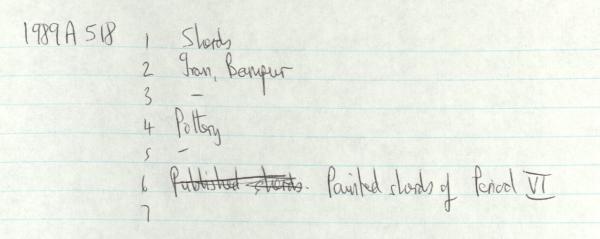 1989A 518 1 Sherds
2 Iran, Bampur
3 –
4 Pottery
5 –
6 Published sherds. Painted sherds of Period VI
7